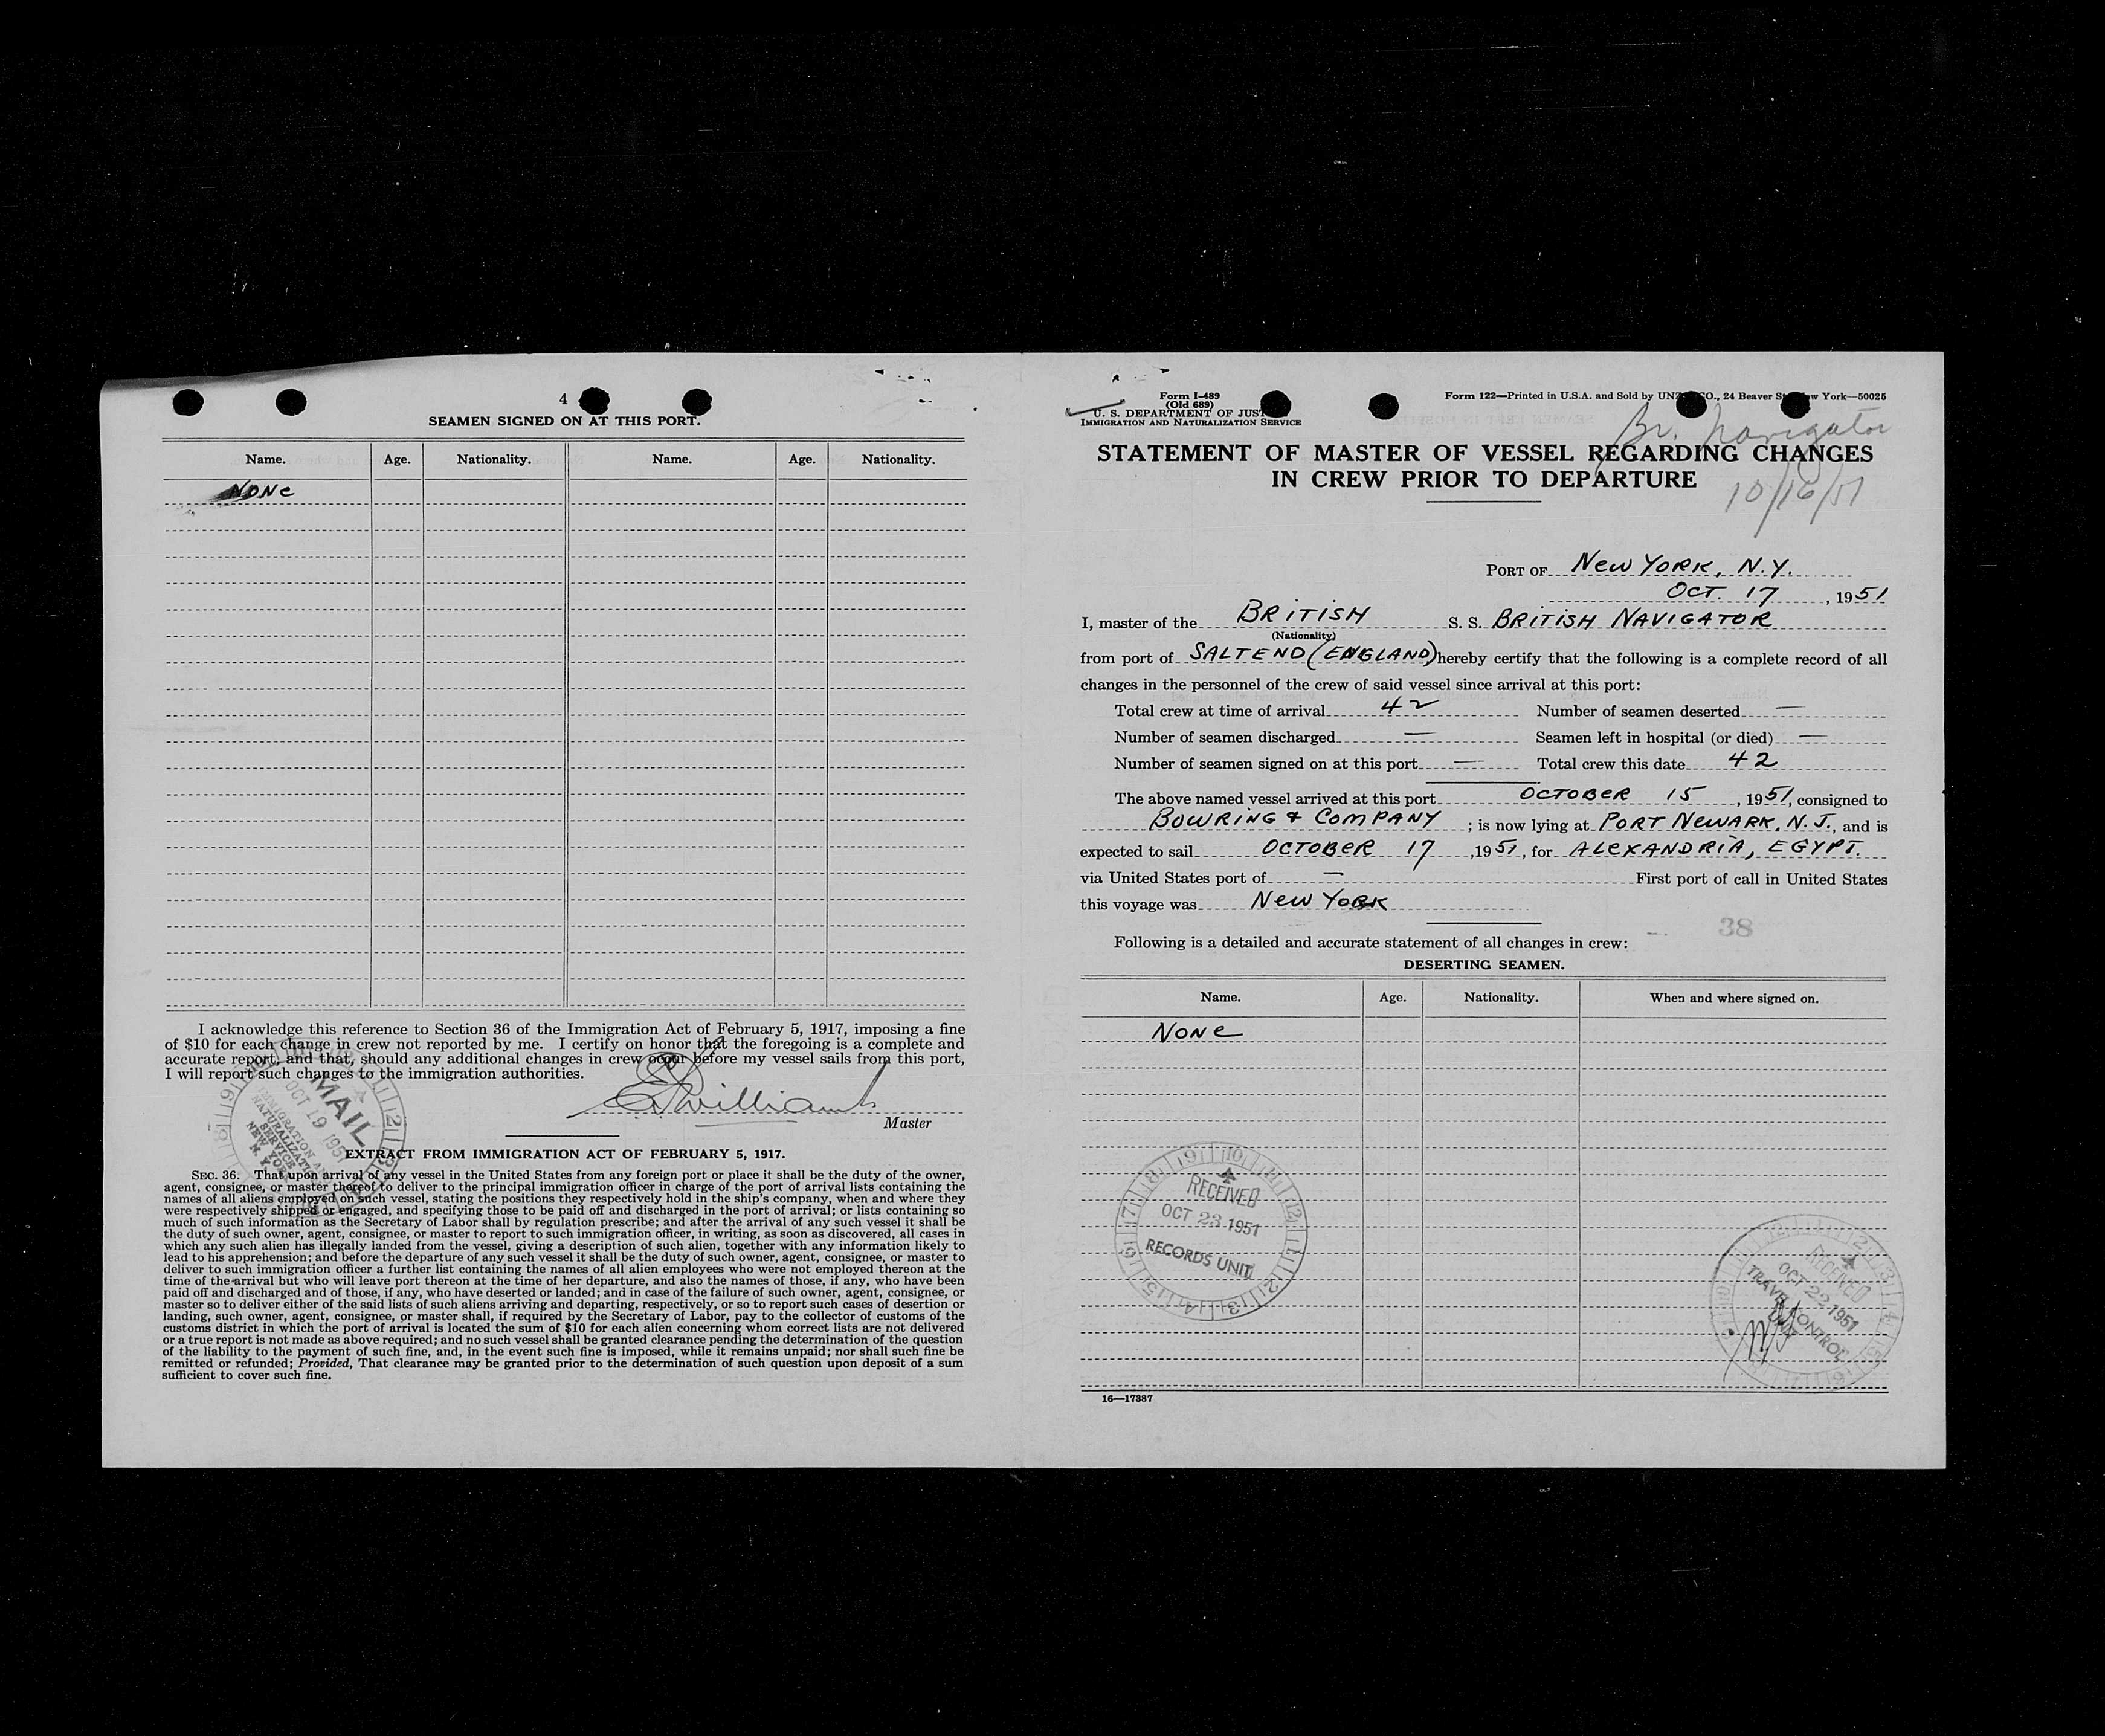 4
SEAMEN SIGNED ON AT THIS PORT.
Name. Age. Nationality. Name. Age. Nationality.
NONE
I acknowledge this reference to Section 36 of the Immigration Act of February 5, 1917, imposing a fine
of $10 for each change in crew not reported by me. I certify on honor that the foregoing is a complete and
accurate report, and that, should any additional changes in crew occur before my vessel sails from this port,
I will report such changes to the immigration authorities.
Williams
Master
MAIL
OCT 19 1951
IMMIGRATION AND
NATURALIZATION
SERVICE
NEW YORK
N. Y.
EXTRACT FROM IMMIGRATION ACT OF FEBRUARY 5, 1917.
SEC. 36. That upon arrival of any vessel in the United States from any foreign port or place it shall be the duty of the owner,
agent, consignee, or master thereof to deliver to the principal immigration officer in charge of the port of arrival lists containing the
names of all aliens employed on such vessel, stating the positions they respectively hold in the ship's company, when and where they
were respectively shipped or engaged, and specifying those to be paid off and discharged in the port of arrival; or lists containing so
much of such information as the Secretary of Labor shall by regulation prescribe; and after the arrival of any such vessel it shall be
the duty of such owner, agent, consignee, or master to report to such immigration officer, in writing, as soon as discovered, all cases in
which any such alien has illegally landed from the vessel, giving a description of such alien, together with any information likely to
lead to his apprehension; and before the departure of any such vessel it shall be the duty of such owner, agent, consignee, or master to
deliver to such immigration officer a further list containing the names of all alien employees who were not employed thereon at the
time of the arrival but who will leave port thereon at the time of her departure, and also the names of those, if any, who have been
paid off and discharged and of those, if any, who have deserted or landed; and in case of the failure of such owner, agent, consignee, or
master so to deliver either of the said lists of such aliens arriving and departing, respectively, or so to report such cases of desertion or
landing, such owner, agent, consignee, or master shall, if required by the Secretary of Labor, pay to the collector of customs of the
customs district in which the port of arrival is located the sum of $10 for each alien concerning whom correct lists are not delivered
or a true report is not made as above required; and no such vessel shall be granted clearance pending the determination of the question
of the liability to the payment of such fine, and, in the event such fine is imposed, while it remains unpaid; nor shall such fine be
remitted or refunded; Provided, That clearance may be granted prior to the determination of such question upon deposit of a sum
sufficient to cover such fine.
Form I-489
(Old 689)
U. S. DEPARTMENT OF JUST
IMMIGRATION AND NATURALIZATION SERVICE
Form 122—Printed in U.S.A. and Sold by UNZ CO., 24 Beaver St w York—50025
Br. Navigator
10/16/51
STATEMENT OF MASTER OF VESSEL REGARDING CHANGES
IN CREW PRIOR TO DEPARTURE
PORT OF NEW YORK, N.Y.
OCT. 17, 1951
I, master of the BRITISH S. S. BRITISH NAVIGATOR
(Nationality)
from port of SALTEND (ENGLAND) hereby certify that the following is a complete record of all
changes in the personnel of the crew of said vessel since arrival at this port:
Total crew at time of arrival 42 Number of seamen deserted —
Number of seamen discharged — Seamen left in hospital (or died) —
Number of seamen signed on at this port — Total crew this date 42
The above named vessel arrived at this port OCTOBER 15, 1951, consigned to
BOWRING & COMPANY ; is now lying at PORT NEWARK, N.J., and is
expected to sail OCTOBER 17, 1951, for ALEXANDRIA, EGYPT.
via United States port of — First port of call in United States
this voyage was NEW YORK
38
Following is a detailed and accurate statement of all changes in crew:
DESERTING SEAMEN.
Name. Age. Nationality. When and where signed on.
NONE
RECEIVED
OCT 23 1951
RECORDS UNIT
RECEIVED
OCT 22 1951
TRAVEL CONTROL
UNIT
16—17387